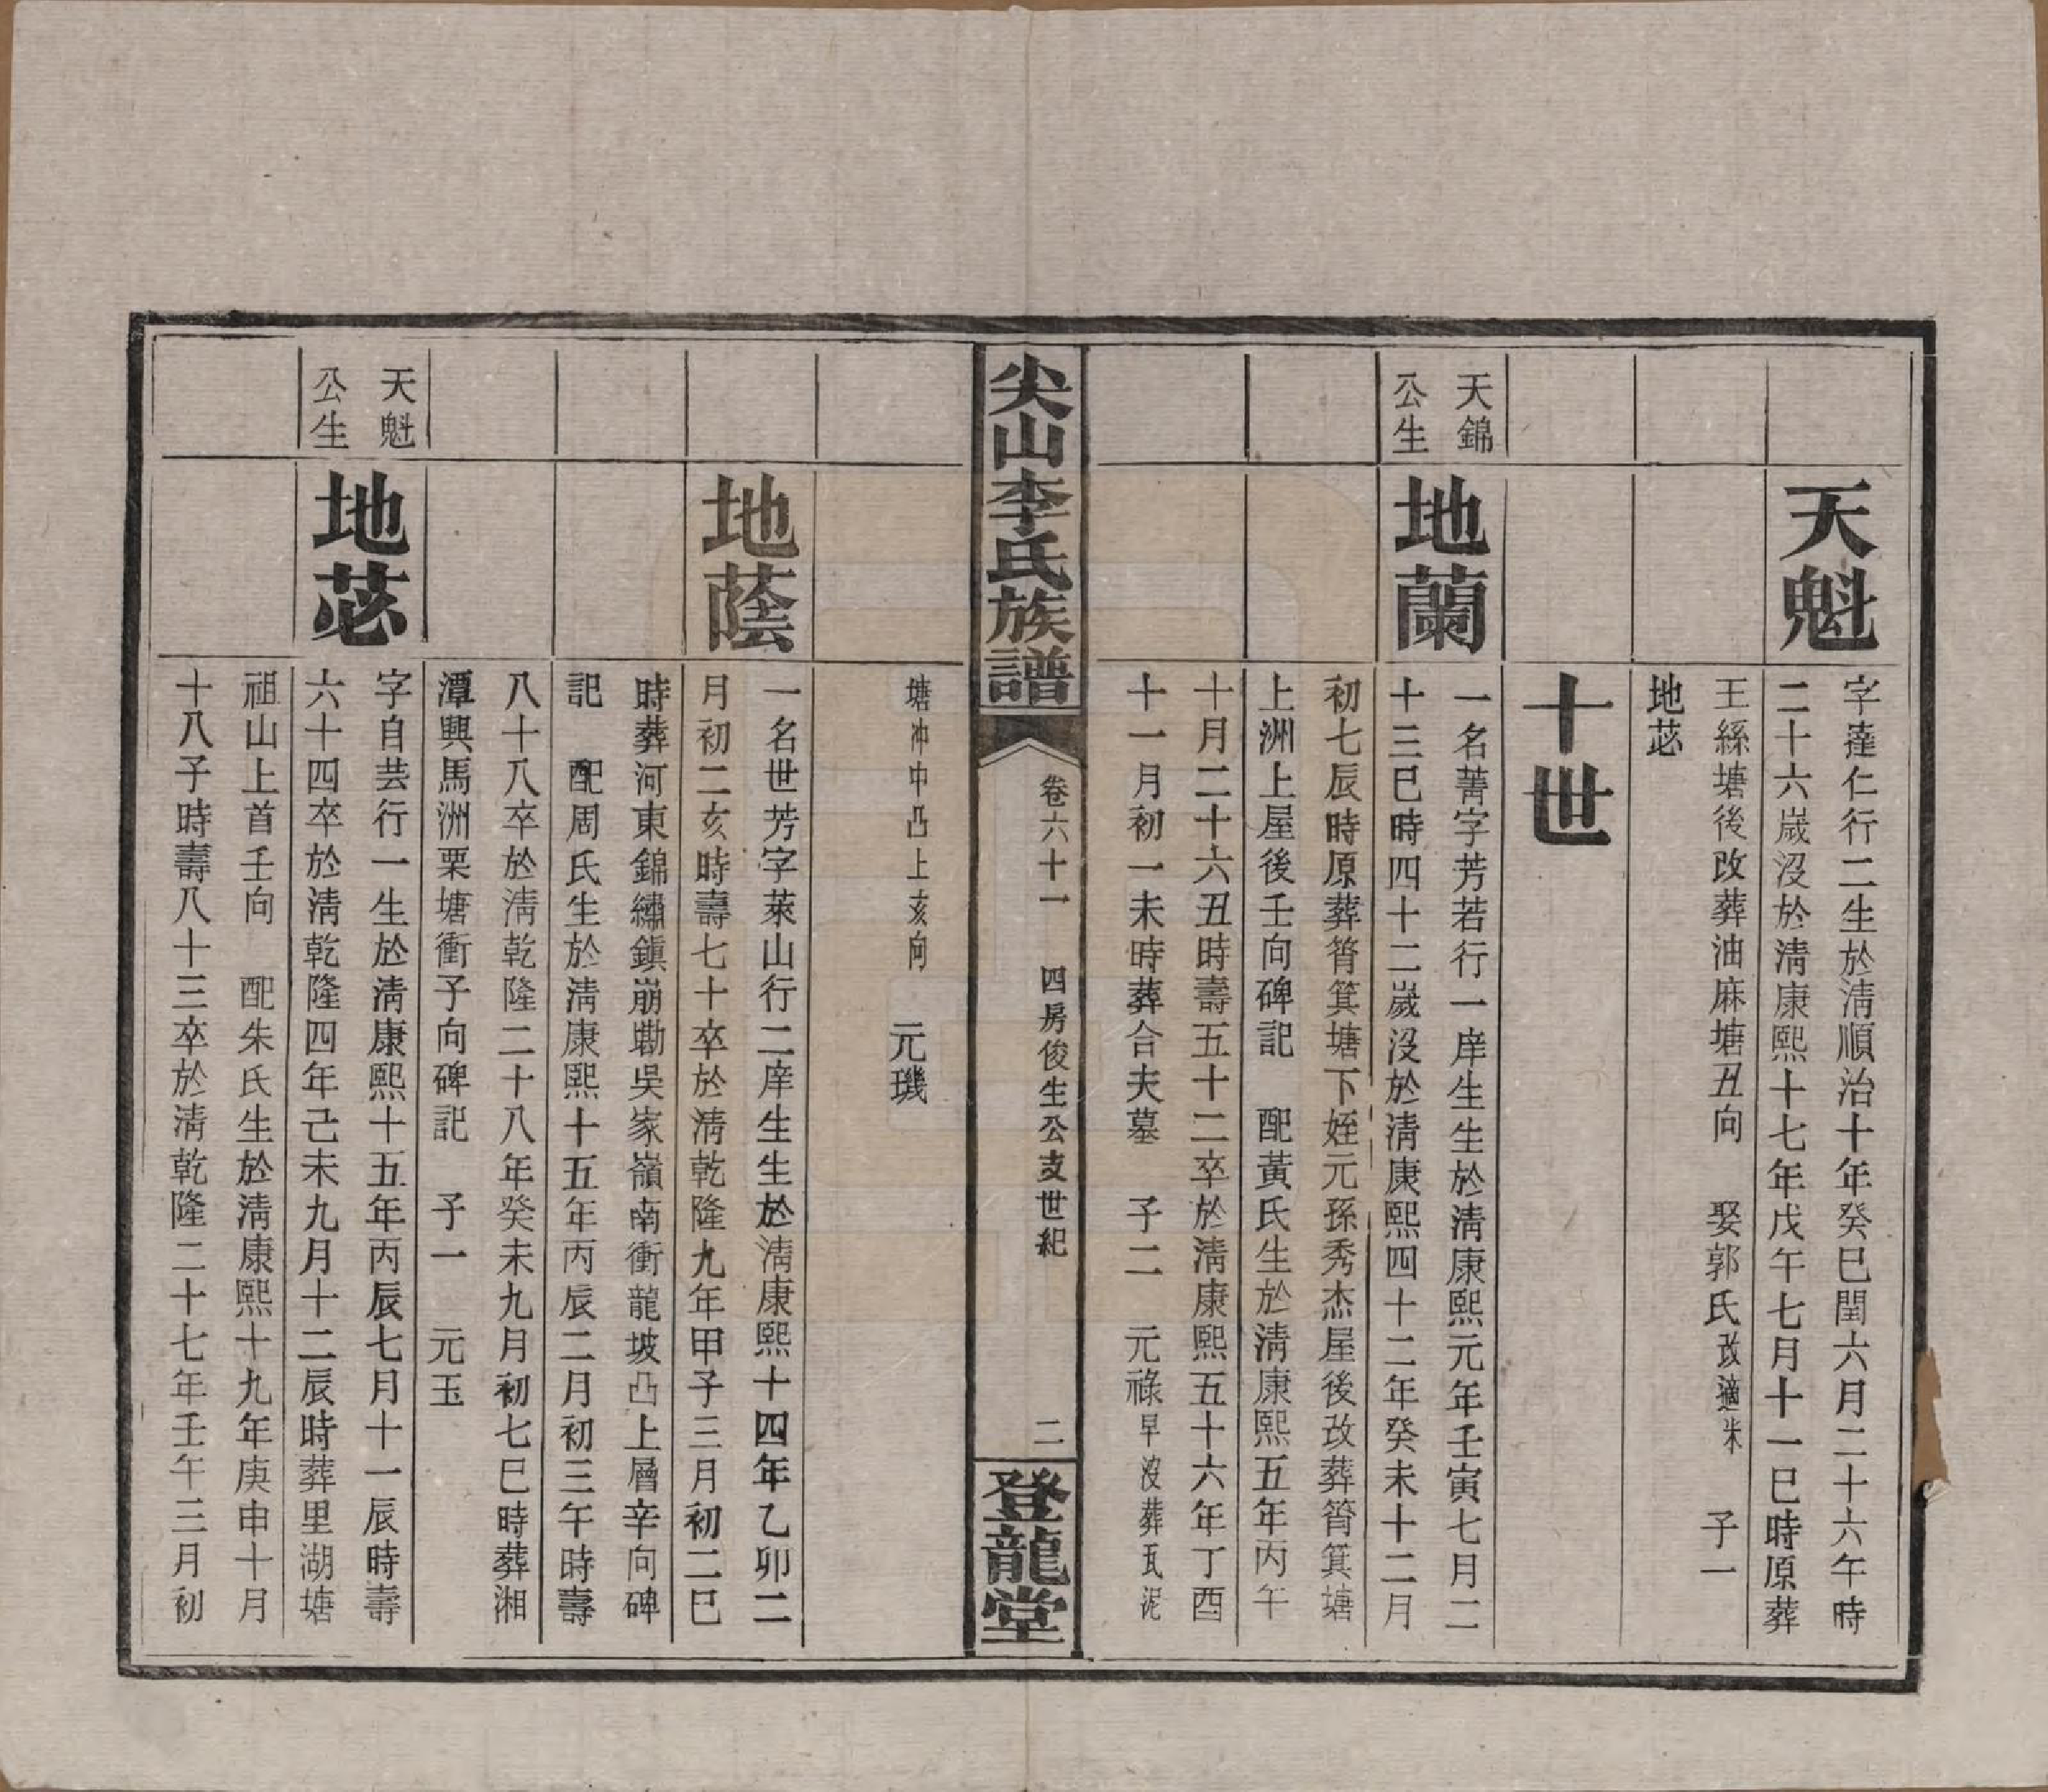 天魁
字達仁行二生於淸順治十年癸巳閏六月二十六午時
二十六歲沒於淸康熙十七年戊午七月十一巳時原葬
王絲塘後改葬油麻塘丑向　娶郭氏改適米　子一
地苾
十世
天錦
公生
地蘭
一名菁字芳若行一庠生生於淸康熙元年壬寅七月二
十三巳時四十二歲沒於淸康熙四十二年癸未十二月
初七辰時原葬筲箕塘下姪元孫秀杰屋後改葬筲箕塘
上洲上屋後壬向碑記　配黃氏生於淸康熙五年丙午
十月二十六丑時壽五十二卒於淸康熙五十六年丁酉
十一月初一未時葬合夫墓　子二　元祿早沒葬瓦泥
尖山李氏族譜
卷六十一　四房俊生公支世紀
二
登龍堂
塘冲中凸上亥向　元璣
地蔭
一名世芳字萊山行二庠生生於淸康熙十四年乙卯二
月初二亥時壽七十卒於淸乾隆九年甲子三月初二巳
時葬河東錦繡鎭崩勘吳家嶺南衝龍坡凸上層辛向碑
記　配周氏生於淸康熙十五年丙辰二月初三午時壽
八十八卒於淸乾隆二十八年癸未九月初七巳時葬湘
潭興馬洲栗塘衝子向碑記　子一　元玉
天魁
公生
地苾
字自芸行一生於淸康熙十五年丙辰七月十一辰時壽
六十四卒於淸乾隆四年己未九月十二辰時葬里湖塘
祖山上首壬向　配朱氏生於淸康熙十九年庚申十月
十八子時壽八十三卒於淸乾隆二十七年壬午三月初